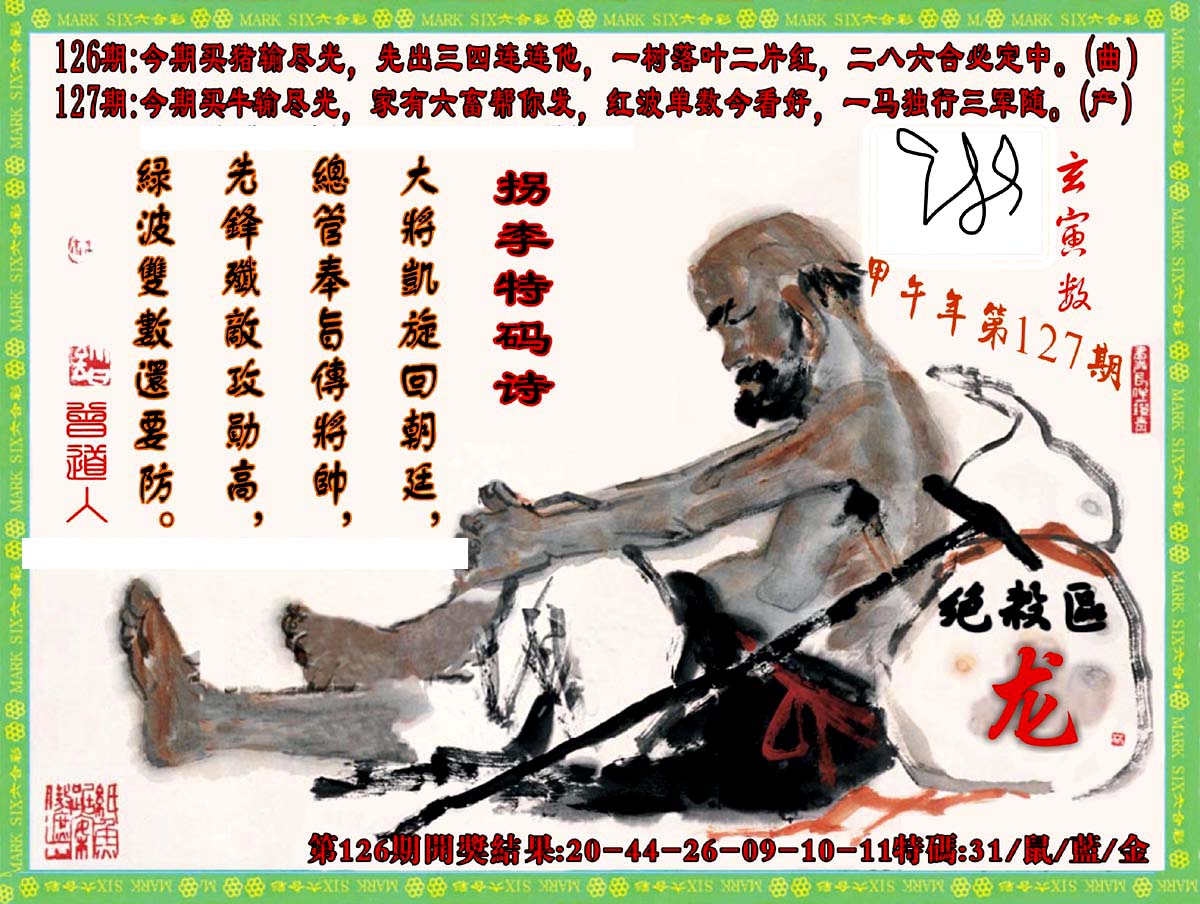 MARK SIX六合彩
126期:今期买猪输尽光，先出三四连连他，一树落叶二片红，二八六合必定中。(曲)
127期:今期买牛输尽光，家有六富帮你发，红波单数今看好，一马独行三军随。(产)
玄寅数
甲午年第127期
拐李特码诗
大將凱旋回朝廷，
總管奉旨傳將帥，
先鋒殲敵攻勛高，
綠波雙數還要防。
曾道人
绝殺區
龙
第126期開獎結果:20-44-26-09-10-11特碼:31/鼠/藍/金